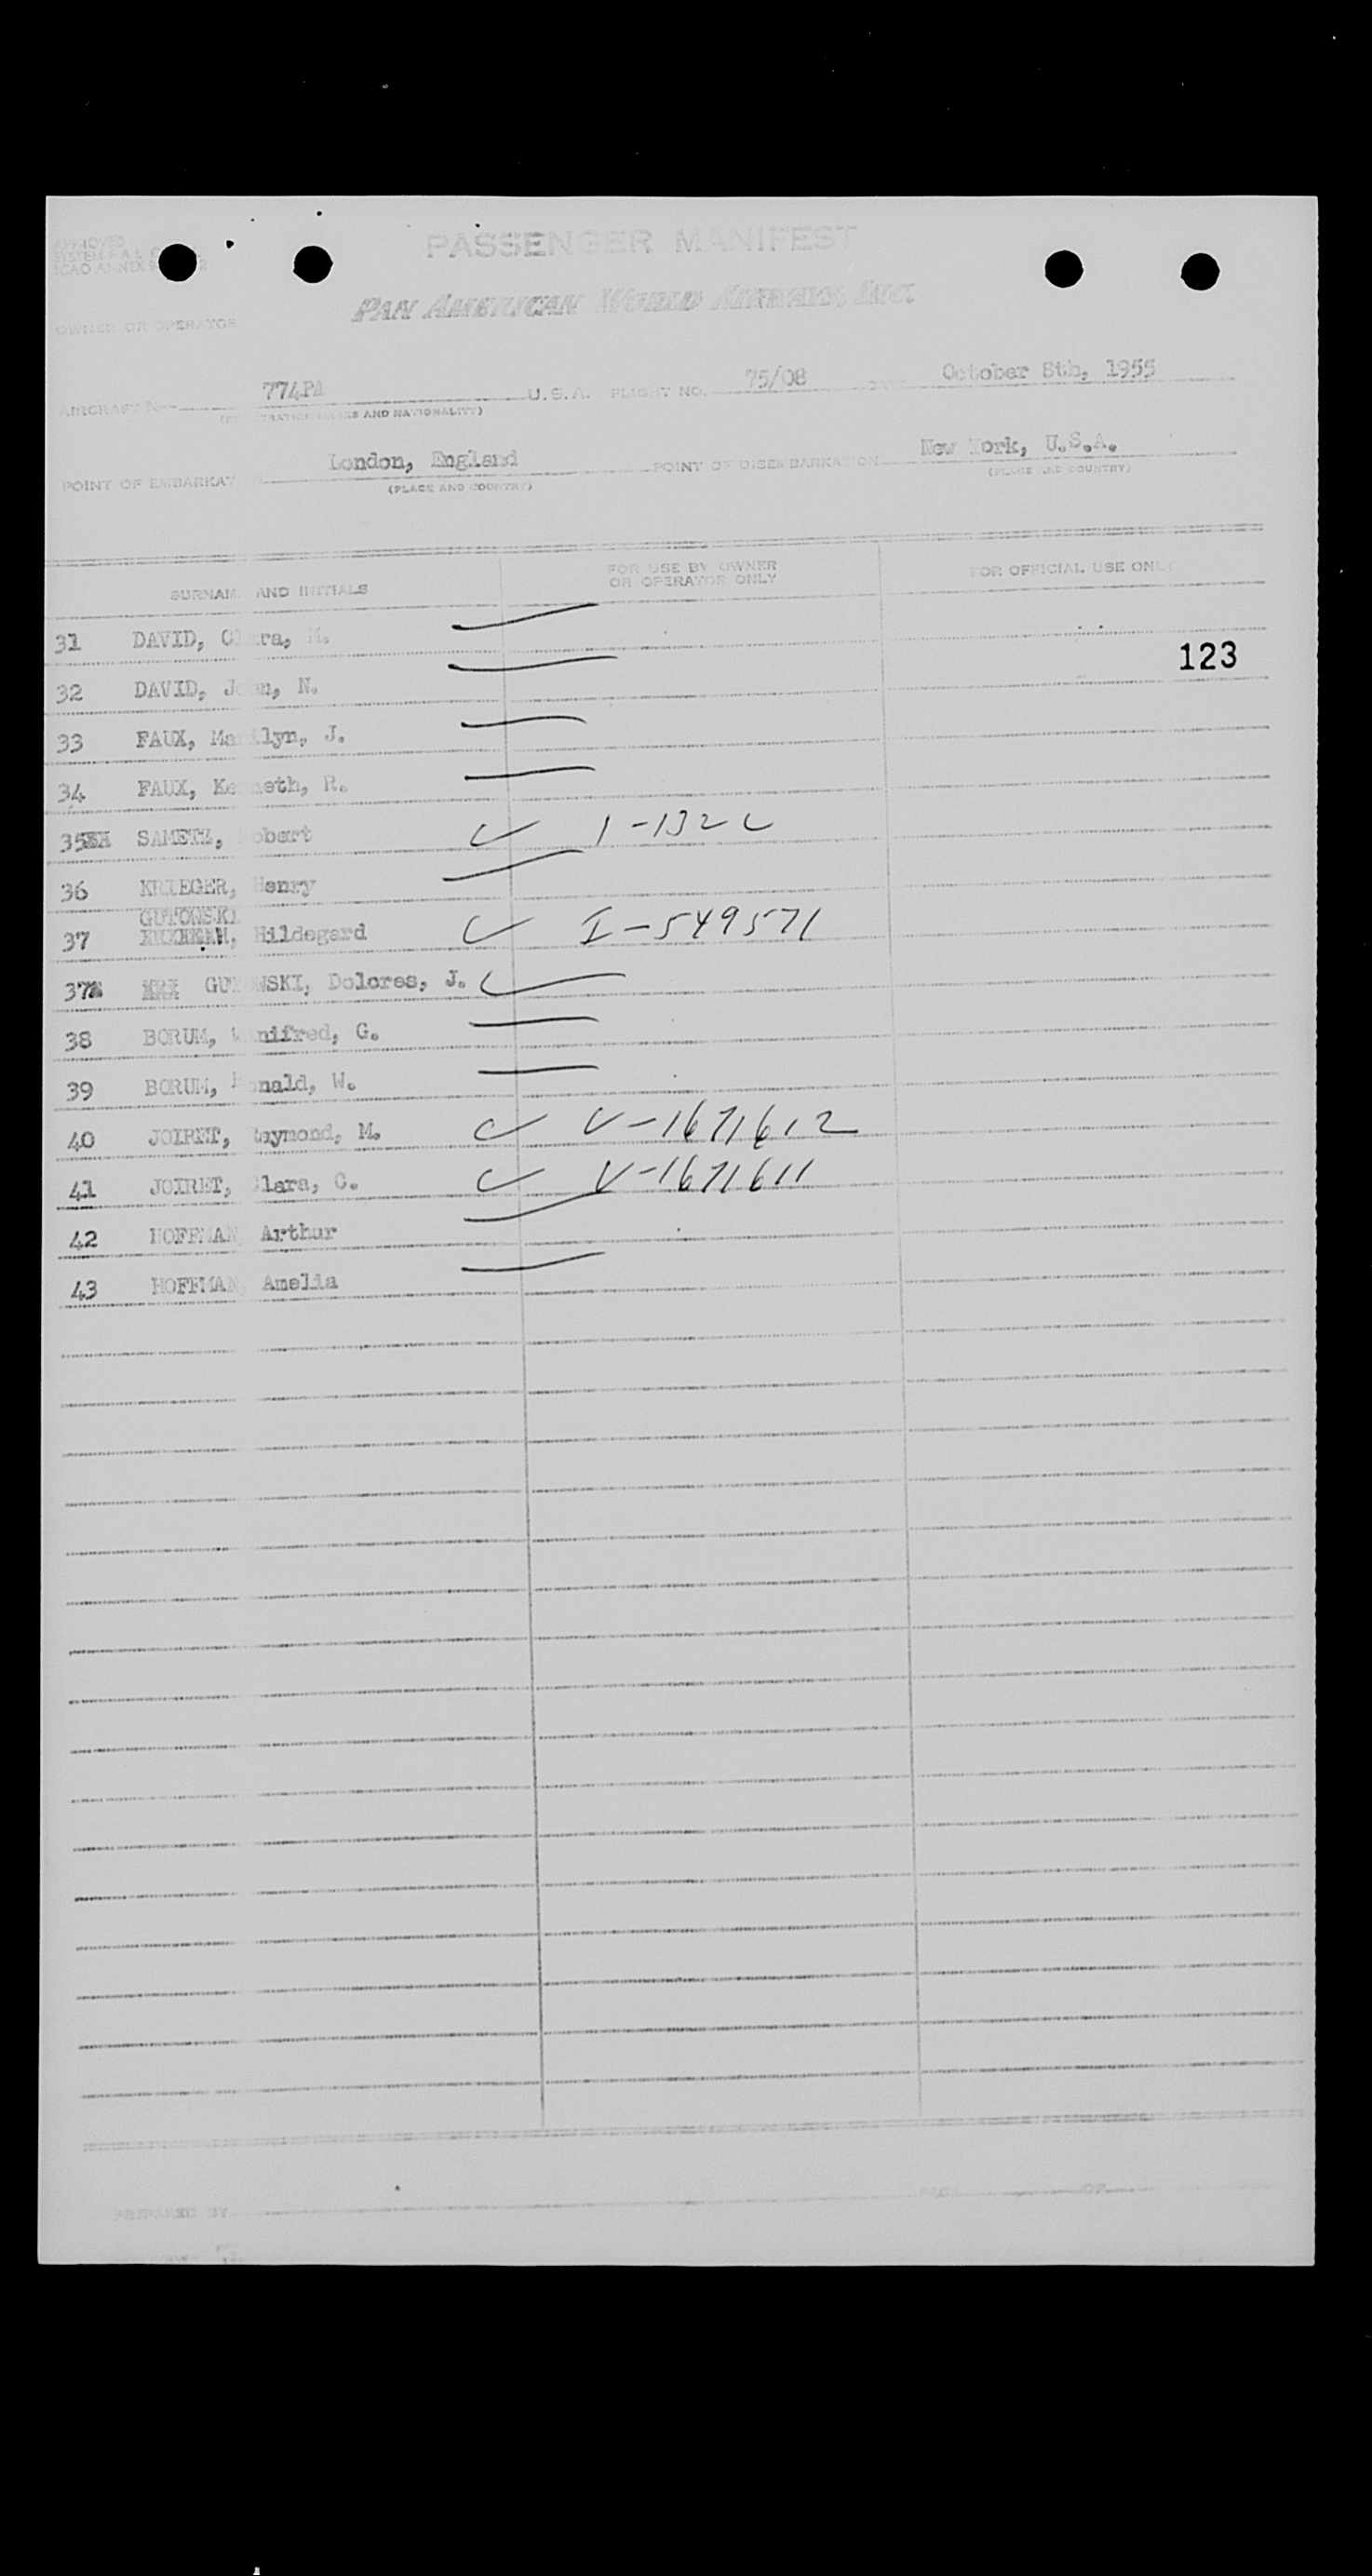 APPROVED
PASSENGER MANIFEST
PAN AMERICAN WORLD AIRWAYS, INC.
OWNER OR OPERATOR
AIRCRAFT 774PA U.S.A. FLIGHT NO. 75/08 October 8th, 1955
AND NATIONALITY)
London, England POINT OF DISEMBARKATION New York, U.S.A.
POINT OF EMBARKAT (PLACE AND COUNTRY) (PLACE AND COUNTRY)
SURNAM AND INITIALS FOR USE BY OWNER OR OPERATOR ONLY FOR OFFICIAL USE ONLY
31 DAVID, Clara, M.
123
32 DAVID, J n, N.
33 FAUX, Marilyn, J.
34 FAUX, Kenneth, R.
35 SAMETZ, Robert
36 KRIEGER, Henry
GUTOWSKI
37 Hildegard I-549571
37 GUTOWSKI, Dolores, J.
38 BORUM, Winifred, G.
39 BORUM, Ronald, W.
40 JOIRET, Raymond, M. V-1671612
41 JOIRET, Clara, C. V-1671611
42 HOFFMAN Arthur
43 HOFFMAN Amelia
PREPARED BY PAGE OF